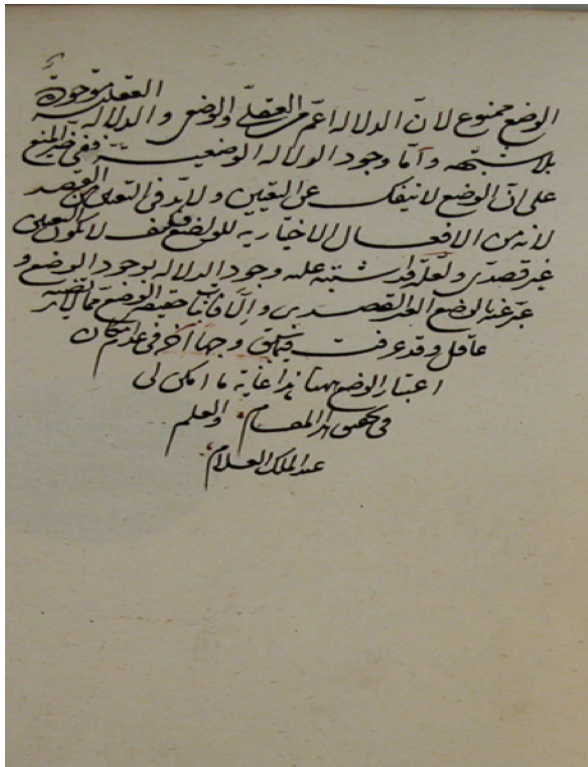 الوضع ممنوع لان الدلاله اعم من العقلى والوضعى والدلاله العقليه موجودة
بلا شبهه وأمّا وجود الدلاله الوضعيـة ففى حيز المنع
على انّ الوضع لا ينفك عن التعيين ولا بدّ فى التعيين من القصد
لانه من الافعال الاختياريه للواضع فكيف لا يكون التعيين
غير قصدى ولعلّه قد اشتبه عليه وجود الدلاله بوجود الوضع و
عبّر عنه بالوضع الغير القصدى والّا فاثبات حقيقة الوضع مما لا يرتضيه
عاقل وقد عرفت فيما سبق وجها آخر فى عدم امكان
اعتبار الوضع ههنا هذا غاية ما امكن لى
فى تحقيق هذا المقـام والعلم
عند الملك العلام